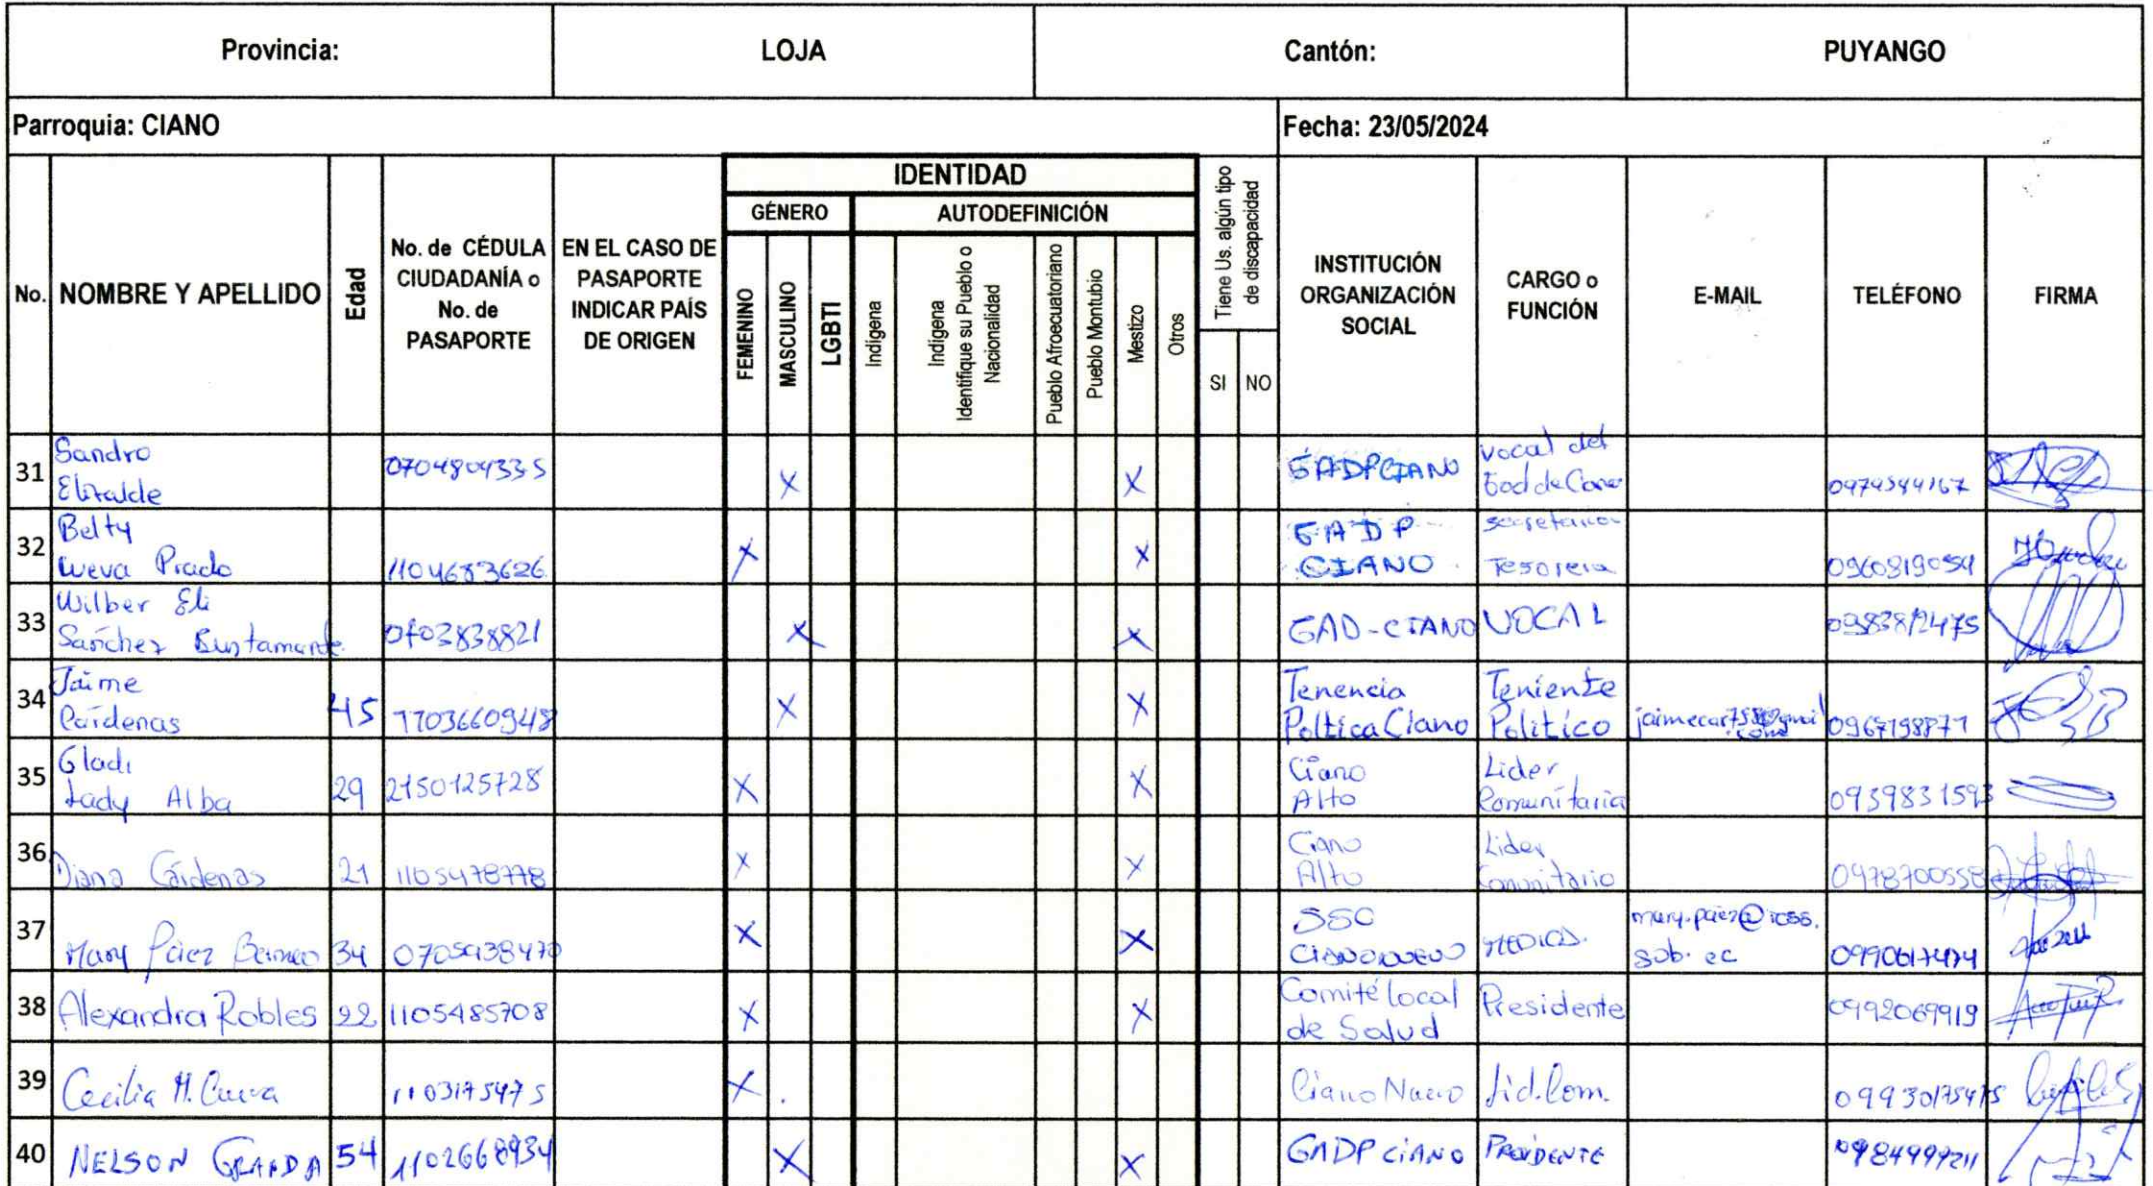 Provincia: LOJA Cantón: PUYANGO
Parroquia: CIANO Fecha: 23/05/2024
No. NOMBRE Y APELLIDO Edad No. de CÉDULA CIUDADANÍA o No. de PASAPORTE EN EL CASO DE PASAPORTE INDICAR PAÍS DE ORIGEN
IDENTIDAD
GÉNERO AUTODEFINICIÓN
FEMENINO MASCULINO LGBTI Indígena Indígena Identifique su Pueblo o Nacionalidad Pueblo Afroecuatoriano Pueblo Montubio Mestizo Otros
Tiene Us. algún tipo de discapacidad
SI NO
INSTITUCIÓN ORGANIZACIÓN SOCIAL CARGO o FUNCIÓN E-MAIL TELÉFONO FIRMA
31 Sandro Elizalde 0704804335 X X GADPCIANO vocal del 0979544167
32 Betty Cueva Prado 1104683626 X X GADP CIANO secretaria Tesorera 0960819054
33 Wilber Eli Sanchez Bustamante 0703838821 X X GAD-CIANO VOCAL
34 Jaime Cárdenas 45 1103660948 X X Tenencia Poltica Ciano Teniente Político 0967198871
35 Gladi Lady Alba 29 2150125728 X X Ciano Alto Lider Comunitaria 0939831593
36 Diana Cárdenas 21 1105478778 X X Ciano Alto Lider Comunitario 0978700558
37 Mary Páez 34 0705938470 X X SSC MEDICO. 0990617474
38 Alexandra Robles 22 1105485708 X X Comité local de Salud Presidente 0992069919
39 Cecilia M. Cueva 1103175475 X Ciano Nuevo Lid. Com. 09930175475
40 NELSON GRANDA 54 1102668934 X X GADP CIANO 0984999211